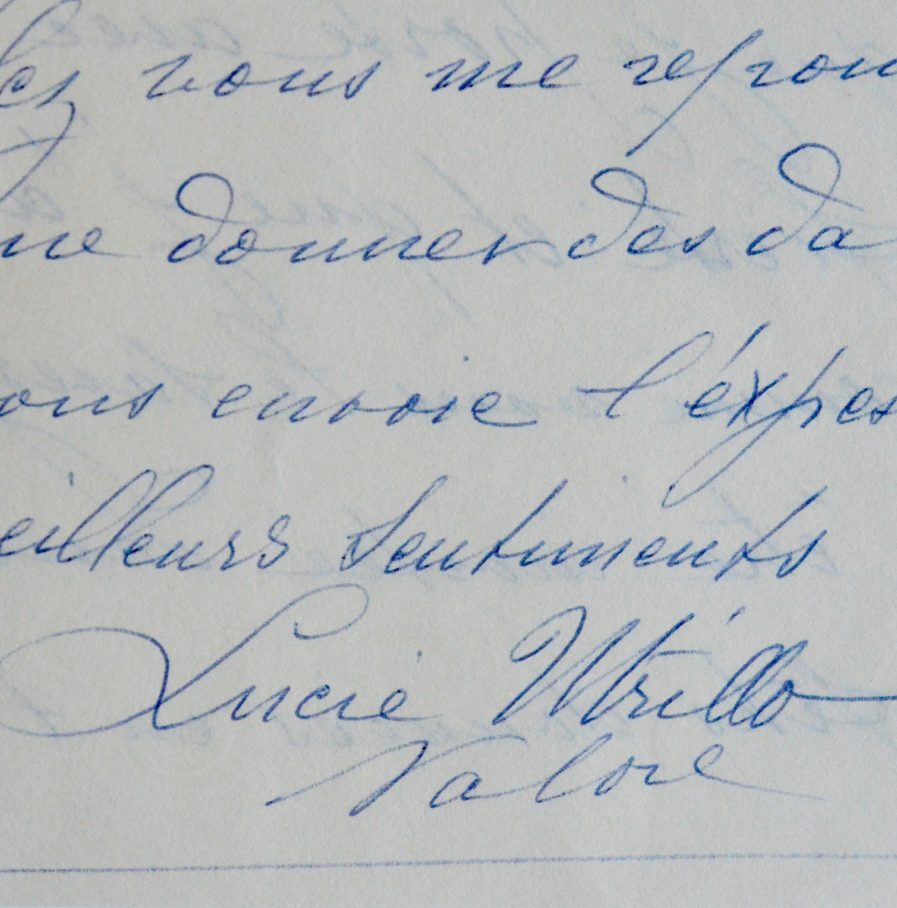 vous me repon
me donner des da
ous envoie l'éxpres
eilleurs sentiments
Lucie Utrillo
Valore